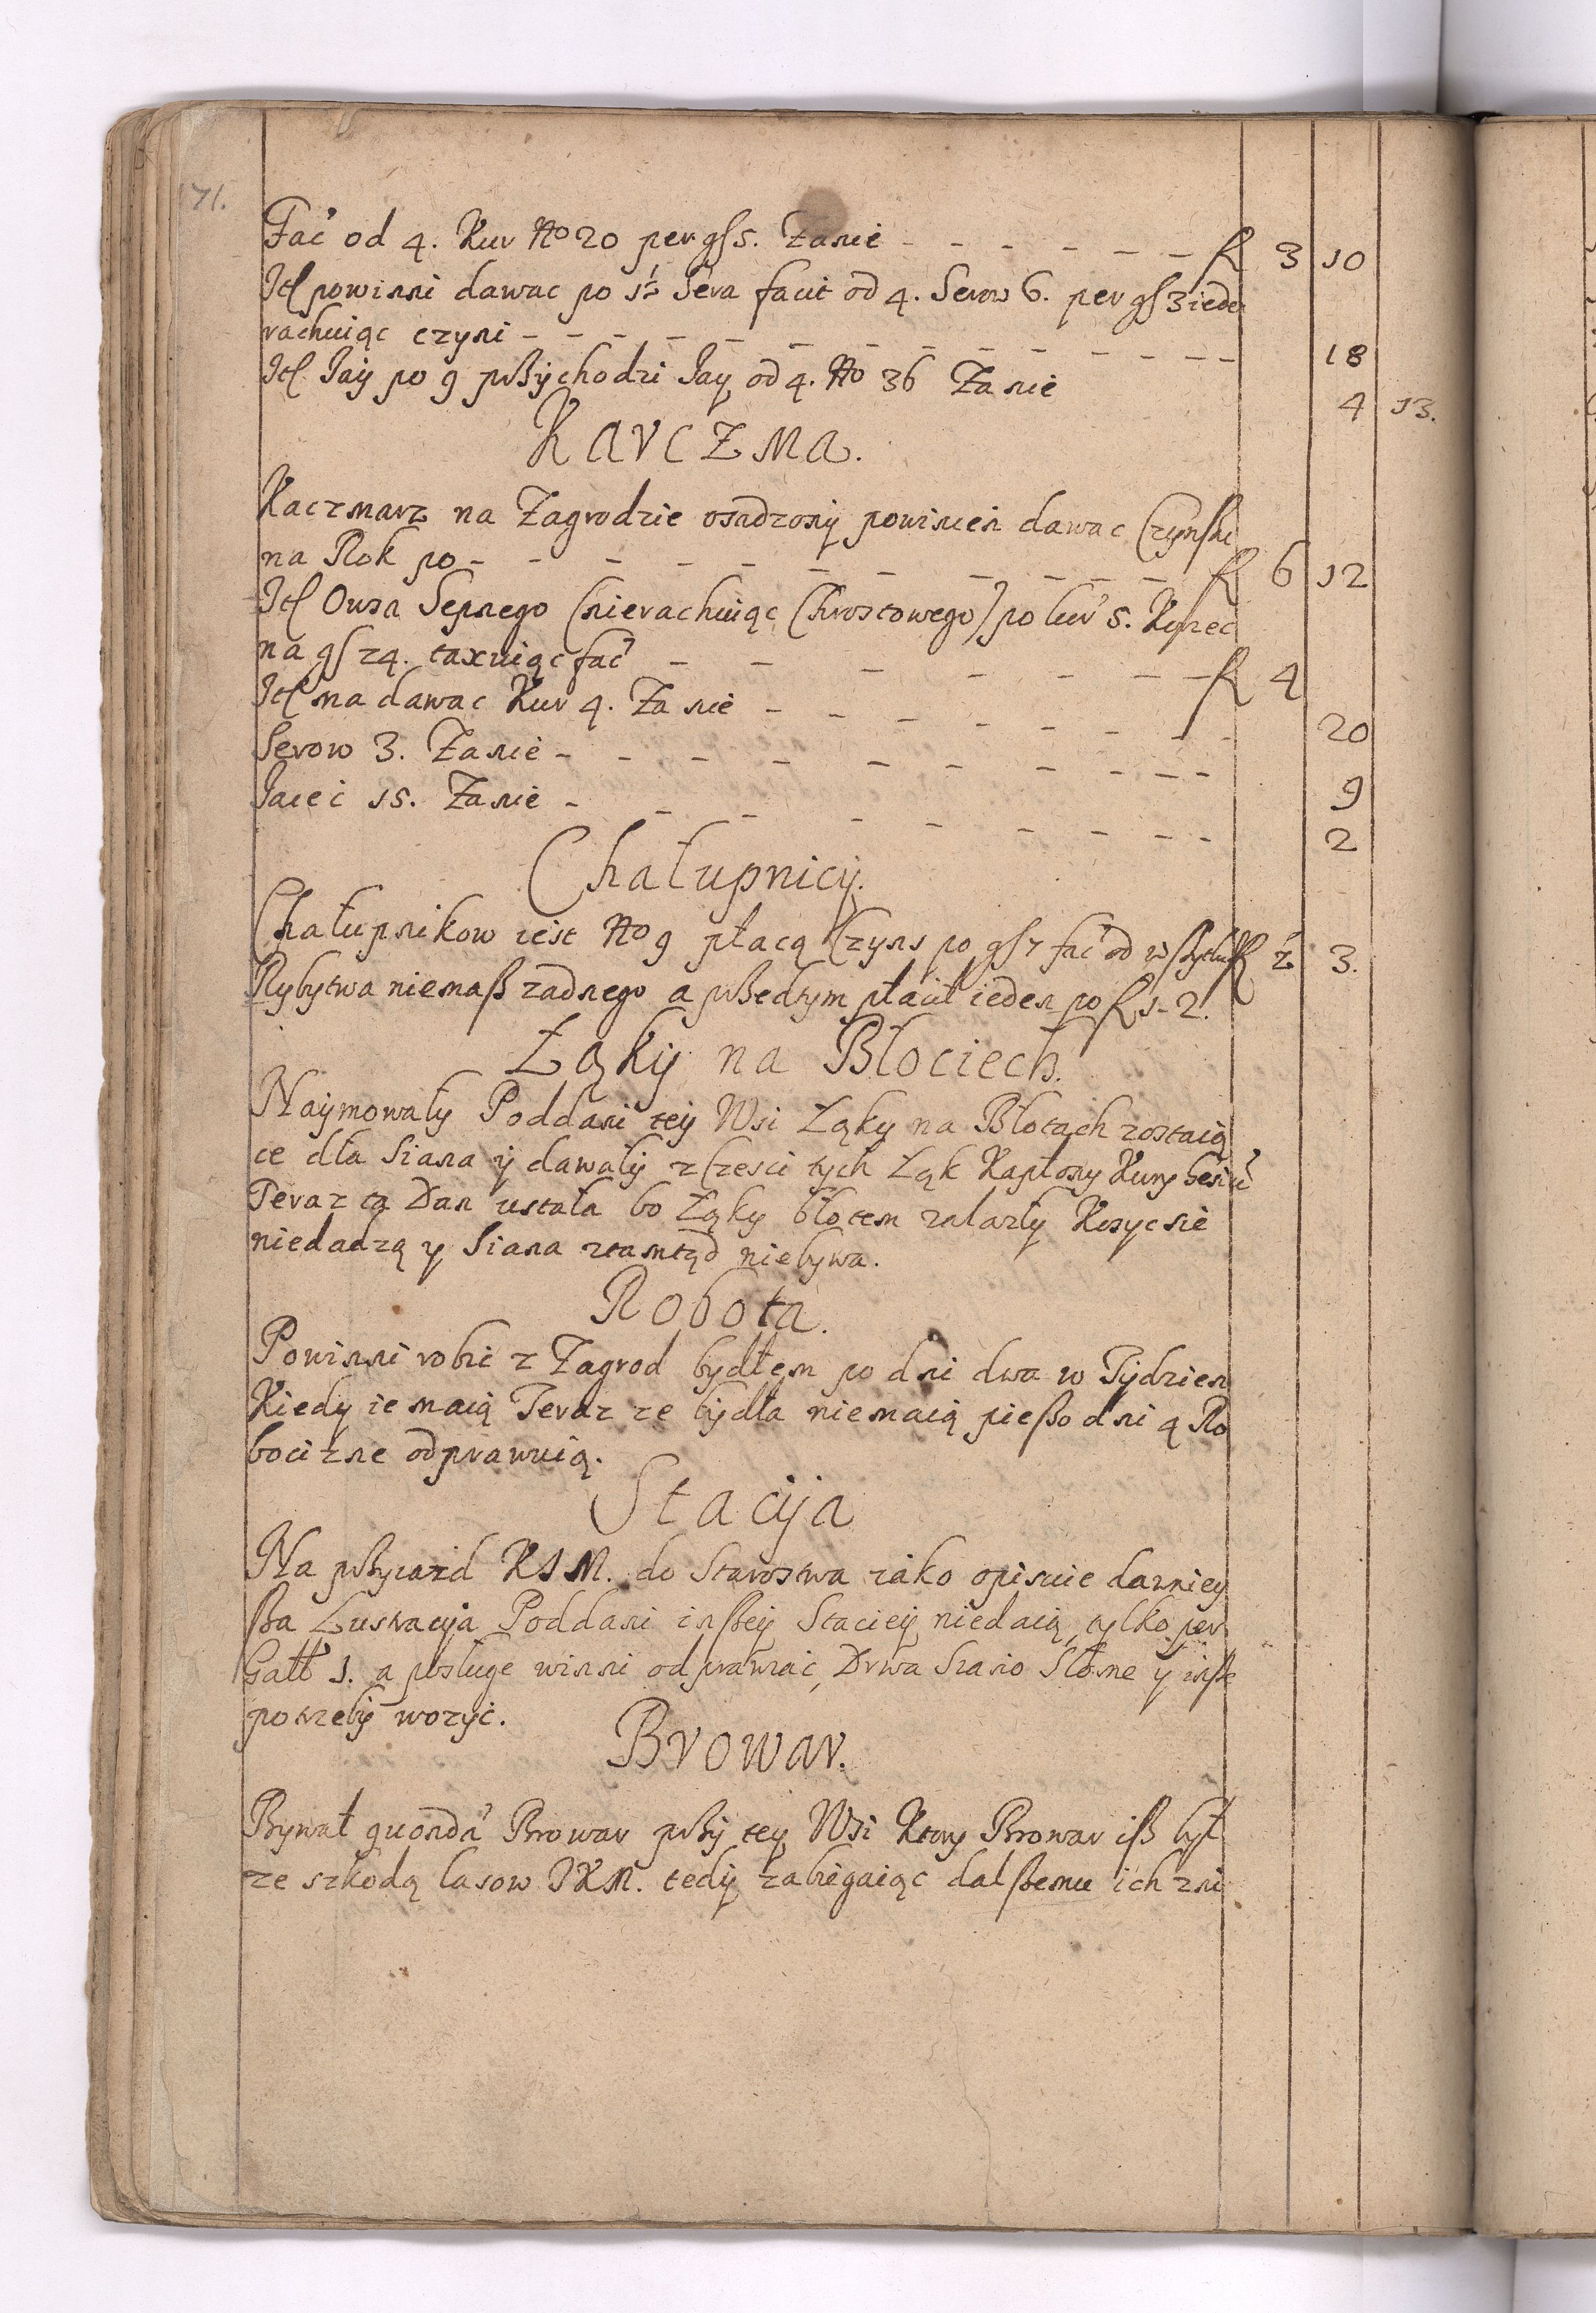 71.
Fac̃ od 4. Kur No 20 per gſ 5. Zanie - - - - - - fl 3 10
Itſ powinni dawac po 1½ Sera facit od 4. Serow 6. per gſ 3 ieden
rachuiąc czyni - - - - - - - - - - - - - 18
Itſ Iaÿ po 9 pßÿchodzi Iaÿ od 4. No 36 Zanie 4 13.
Karczma.
Kaczmarz na Zagrodzie osadzonÿ powinien dawac Czynſzu
na Rok po - - - - - - - - - - fl 6 12
Itſ Owsa Sepnego (nierachuiąc Chrostowego) po Cur̃ 5. Korzec
na gſ 24. taxuiąc fac̃ - - - - - - - fl 4
Itſ ma dawac Kur 4. Zanie - - - - - - - - 20
Serow 3. Zanie - - - - - - - - - - 9
Iaiec 15. Zanie - - - - - - - - - 2
Chałupnicÿ.
Chałupnikow iest No 9 płacą Czyns po gſ 7 fac̃ od wßytkich fl 2 3.
Rybytwa niemaß zadnego a pßedtym płacił ieden po fl 1-2.
Łąkÿ na Błociech.
Naÿmowały Poddani teÿ Wsi Łąky na Błotach zostaią
ce dla Siana ÿ dawałÿ z Czesci tych Łąk Kapłony Kury
Teraz ta Dan ustała bo Łąky błotem zalazły Kosyc sie
niedadzą y Siana ztamtąd niebywa.
Robota.
Powinni robic z Zagrod bydłem po dni dwa w Tÿdzien
Kiedÿ ie maią Teraz ze bÿdła niemaią pießo dni 4 Ro
bocizne odprawuią.
Stacÿa
Na pßyiazd KIM. do Starostwa iako opisuie dawniey
ßa Lustracÿa Poddani inßeÿ Stacieÿ niedaią, tylko per
Gall 1. a posługe winni odprawiac, Drwa Siano Słome y inße
potrzebÿ wozÿc.
Browar.
Bywał quondã Browar pßÿ teÿ Wsi Ktory Browar iß był
ze szkodą lasow IKM. tedÿ zabiegaiąc dalßemu ich zni